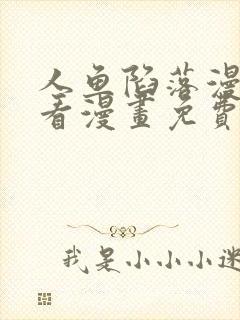 人鱼陷落漫
看漫畫免費
我是小小小迷